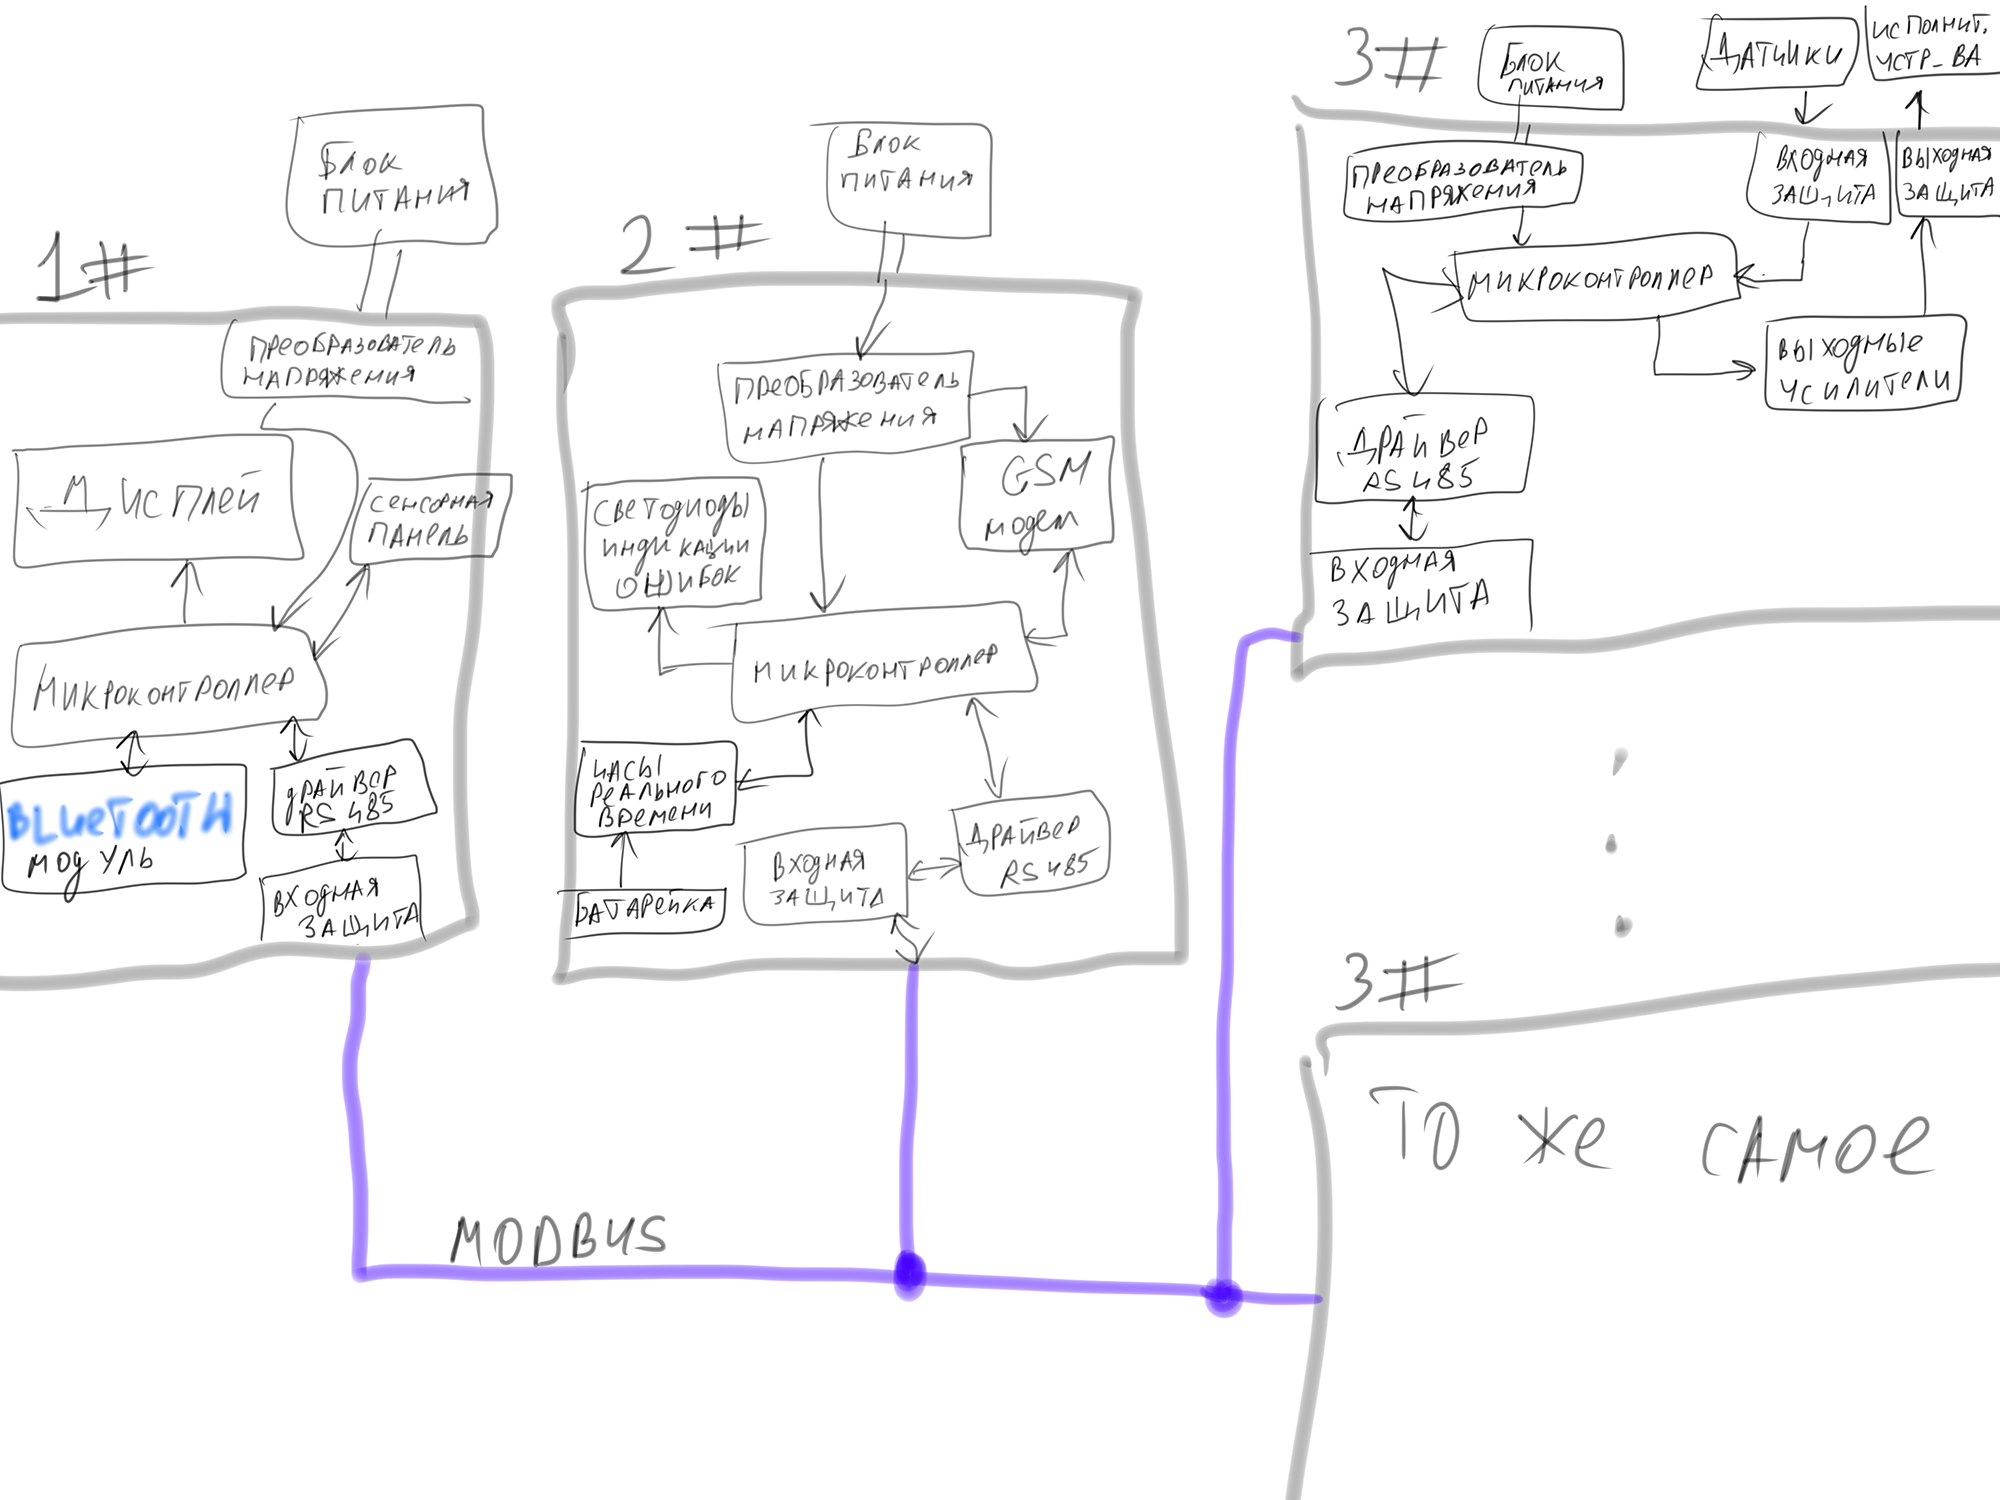 1#
Блок
питания
Преобразователь
напряжения
Дисплей
Сенсорная
панель
Микроконтроллер
BLUETOOTH
модуль
драйвер
RS485
Входная
защита
2#
Блок
питания
Преобразователь
напряжения
GSM
модем
Светодиоды
индикации
ошибок
Микроконтроллер
Часы
реального
времени
Батарейка
Входная
защита
Драйвер
RS485
3#
Блок
питания
Датчики
исполнит.
устр-ва
Преобразователь
напряжения
Входная
защита
Выходная
защита
Микроконтроллер
Выходные
усилители
Драйвер
RS485
Входная
защита
3#
То же самое
MODBUS